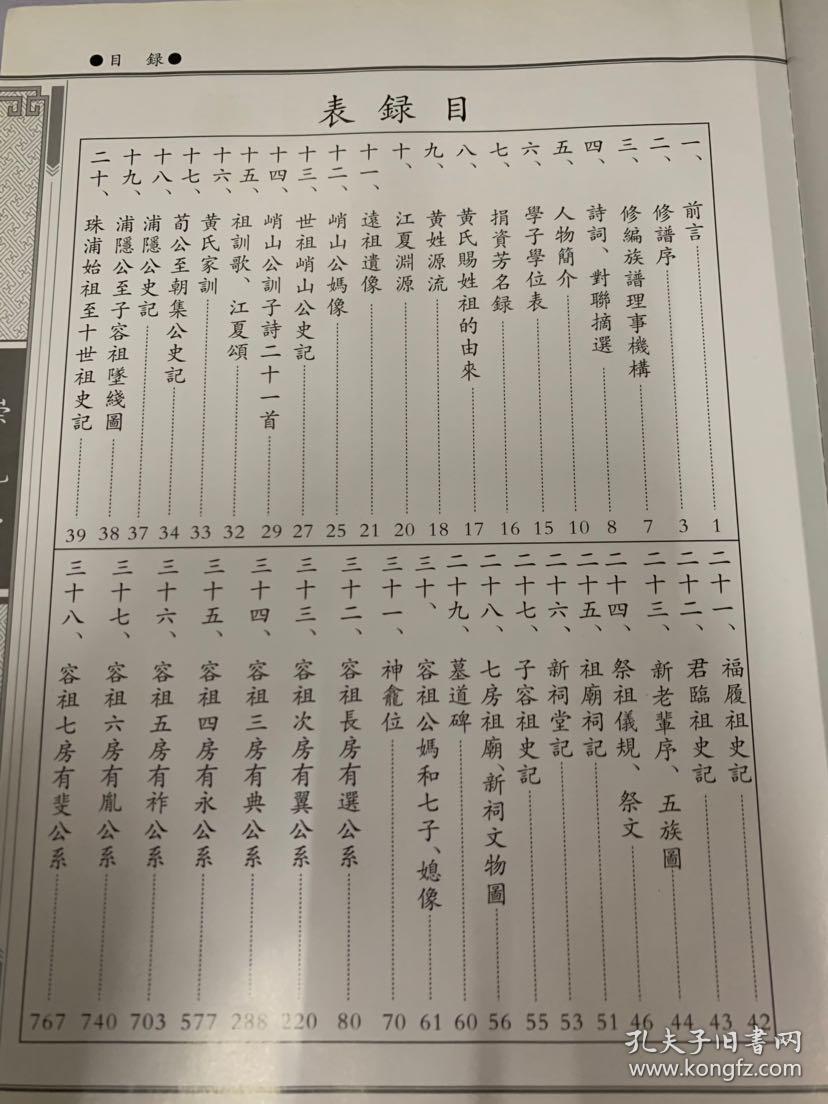 ●目 録●
目録表
一、前言 1
二、修譜序 3
三、修編族譜理事機構 7
四、詩詞、對聯摘選 8
五、人物簡介 10
六、學子學位表 15
七、捐資芳名録 16
八、黃氏賜姓祖的由來 17
九、黃姓源流 18
十、江夏淵源 20
十一、遠祖遺像 21
十二、峭山公媽像 25
十三、世祖峭山公史記 27
十四、峭山公訓子詩二十一首 29
十五、祖訓歌、江夏頌 32
十六、黃氏家訓 33
十七、荀公至朝集公史記 34
十八、浦隱公史記 37
十九、浦隱公至子容祖墜綫圖 38
二十、珠浦始祖至十世祖史記 39
二十一、福履祖史記 42
二十二、君臨祖史記 43
二十三、新老輩序、五族圖 44
二十四、祭祖儀規、祭文 46
二十五、祖廟祠記 51
二十六、新祠堂記 53
二十七、子容祖史記 55
二十八、七房祖廟、新祠文物圖 56
二十九、墓道碑 60
三十、容祖公媽和七子、媳像 61
三十一、神龕位 70
三十二、容祖長房有選公系 80
三十三、容祖次房有翼公系 220
三十四、容祖三房有典公系 288
三十五、容祖四房有永公系 577
三十六、容祖五房有祚公系 703
三十七、容祖六房有胤公系 740
三十八、容祖七房有斐公系 767
孔夫子旧書网
www.kongfz.com